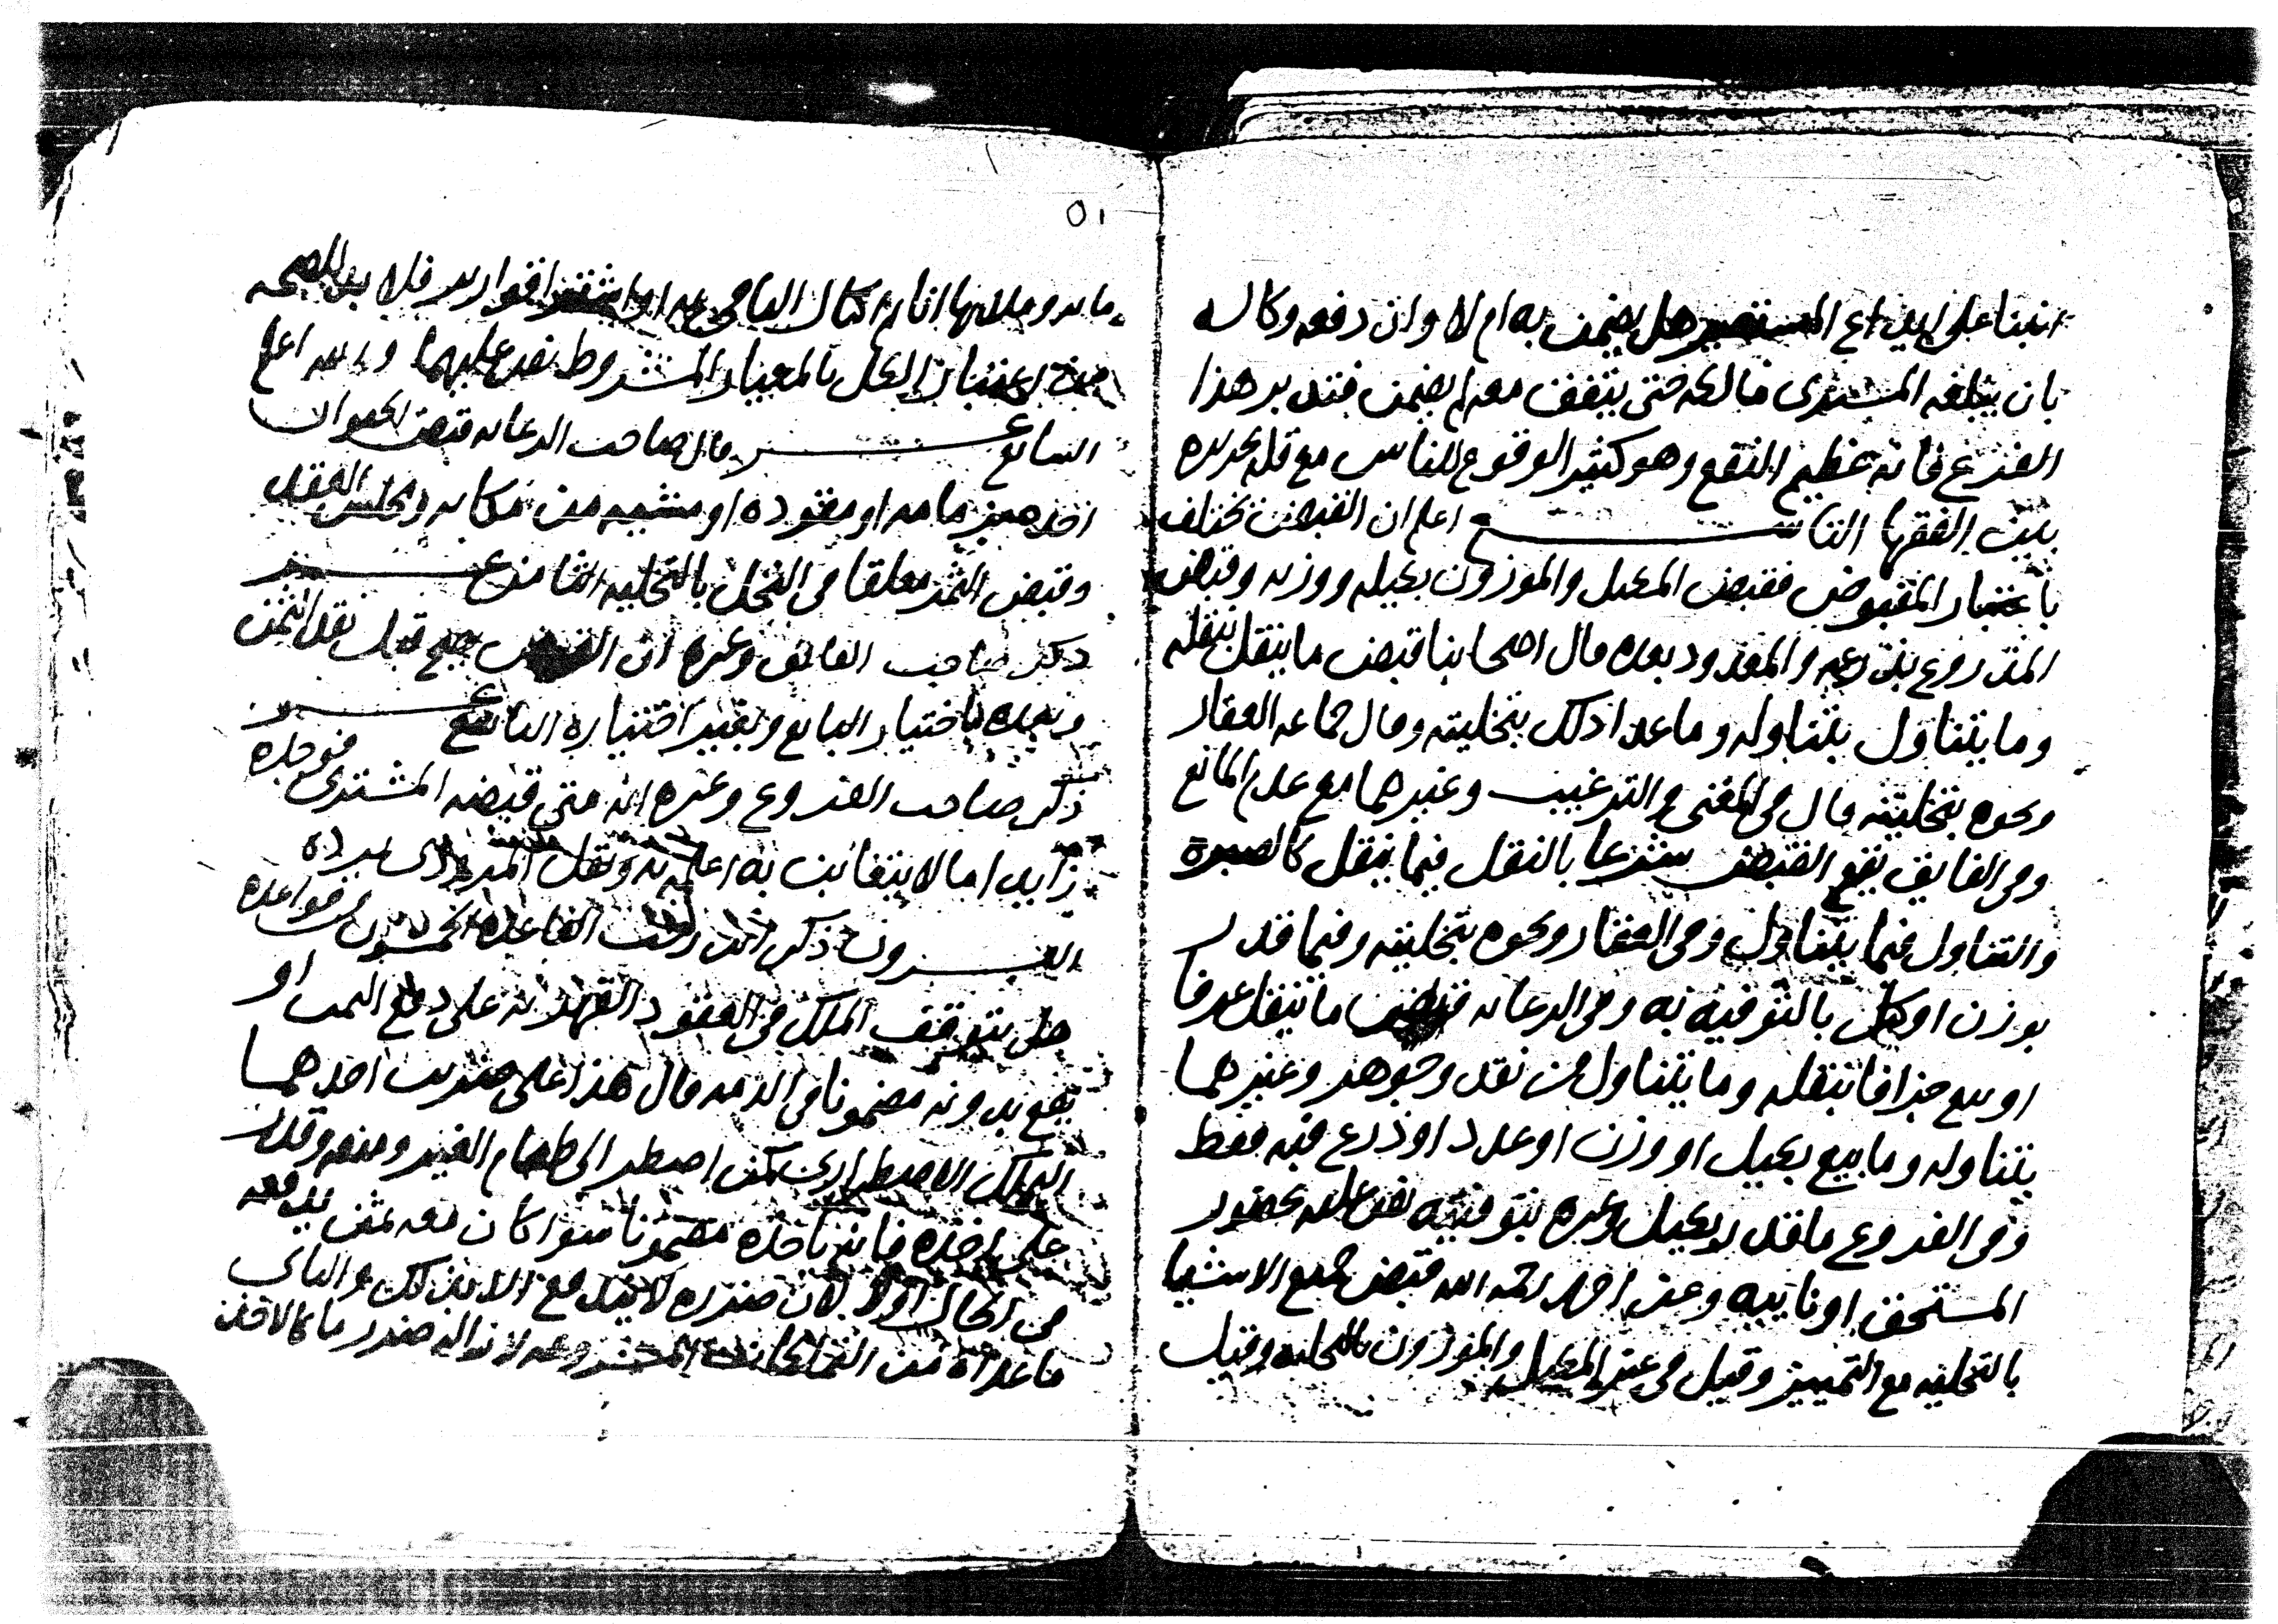 انبنا على ايداع المستعير هل يضمن به ام لا وان دفعه وكاله
بان يبلغه المشترى فالحه حتى يثقف معه لم يضمن فتدبر هذا
الفرع فانه عظيم النفع وهو كثير الوقوع للناس مع قله تحريره
بين الفقها التاسع اعلم ان القبض يختلف
باعتبار المقبوض فقبض المكيل والموزون بكيله ووزنه وقبض
المذروع بذرعه والمعدود بعده قال اصحابنا قبض ما ينقل بنقله
وما يتناول بتناوله وما عدا ذلك بتخليته وقال جماعه العقار
ونحوه بتخليته قال فى المغنى والترغيب وغيرهما مع عدم المانع
وفى الفايق يقع القبض شرعا بالنقل فيما ينقل كالصبرة
والتناول فيما يتناول وفى العقار ونحوه بتخليته وفيما قدر
بوزن او كيل بالتوفيه به وفى الرعايه قبض ما ينقل عرفا
او بيع جزافا بنقله وما يتناول من نقد وجوهر وغيرهما
بتناوله وما بيع بكيل او وزن او عدد او ذرع فيه فقط
وفى الفروع ما قدر بكيل وغيره بتوفيته نص عليه بحضور
المستحق او نايبه وعن احمد رحمه الله قبض جميع الاشيا
بالتخليه مع التمييز وقيل فى غير المكيل والموزون بالتخليه وقيل
٥١
اكتال اشترا فلا بد للصحه
اعتبار الكل بالمعيار المشروط نص عليهما والله اعلم
السابع عشر قال صاحب الرعايه قبض الحيوان
اخذه بزمامه او مقوده او مشيه من مكانه ومجلس العقد
وقبض الثمر معلقا فى النخل بالتخليه الثامن عشر
ذكر صاحب الفايق وغيره ان القبض يصح قبل نقد الثمن
وبعده باختيار البايع وبغير اختياره التاسع عشر
ذكر صاحب الفروع وغيره انه متى قبضه المشترى فوجده
زايدا ما لا يتغابن به اعلمه ونقل المروذى يرده
العشرون ذكر ابن رجب القاعده الخمسون من قواعده
هل يتوقف الملك فى العقود القهريه على دفع الثمن او
يقع بدونه مضمونا فى الذمه قال هذا على ضربين احدهما
التملك الاضطرارى كمن اضطر الى طعام الغير ومنعه وقدر
على اخذه فانه ياخذه مضمونا سوا كان معه ثمن يدفعه
فى الحال اولا لان ضرره لا يندفع الا بذلك والثانى
ما عداه من التملكات المشروعه لازاله ضرر ما كالاخذ